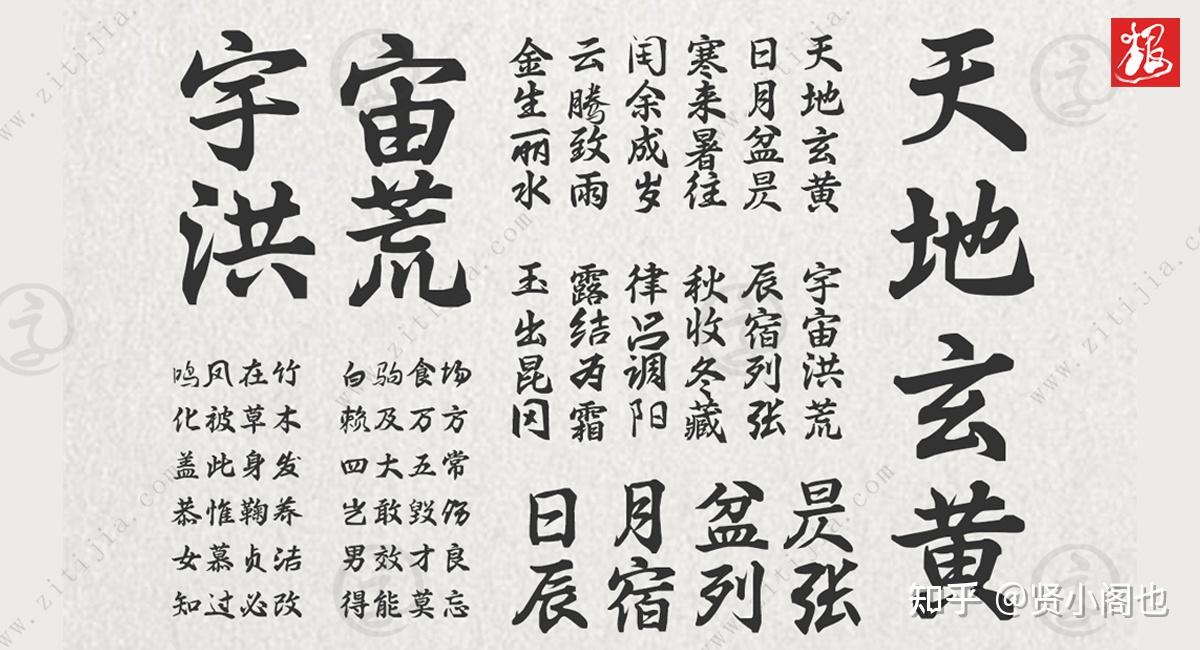 天地玄黄
天地玄黄
日月盆昃
寒来暑往
闰余成岁
云腾致雨
金生丽水
宇宙洪荒
辰宿列张
秋收冬藏
律吕调阳
露结为霜
玉出昆冈
日月盆昃
辰宿列张
宇宙
洪荒
鸣凤在竹 白驹食场
化被草木 赖及万方
盖此身发 四大五常
恭惟鞠养 岂敢毁伤
女慕贞洁 男效才良
知过必改 得能莫忘
知乎 @贤小阁也
www.zitijia.com